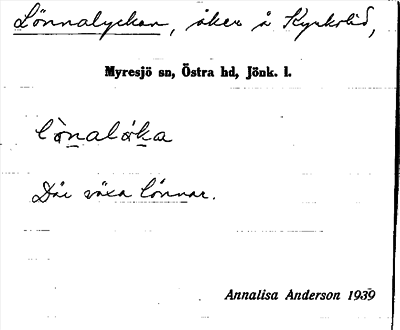 Lönnalyckan, åker å Kyrkolid,
Myresjö sn, Östra hd, Jönk. l.
lònalòka
Där växa lönnar.
Annalisa Anderson 1939